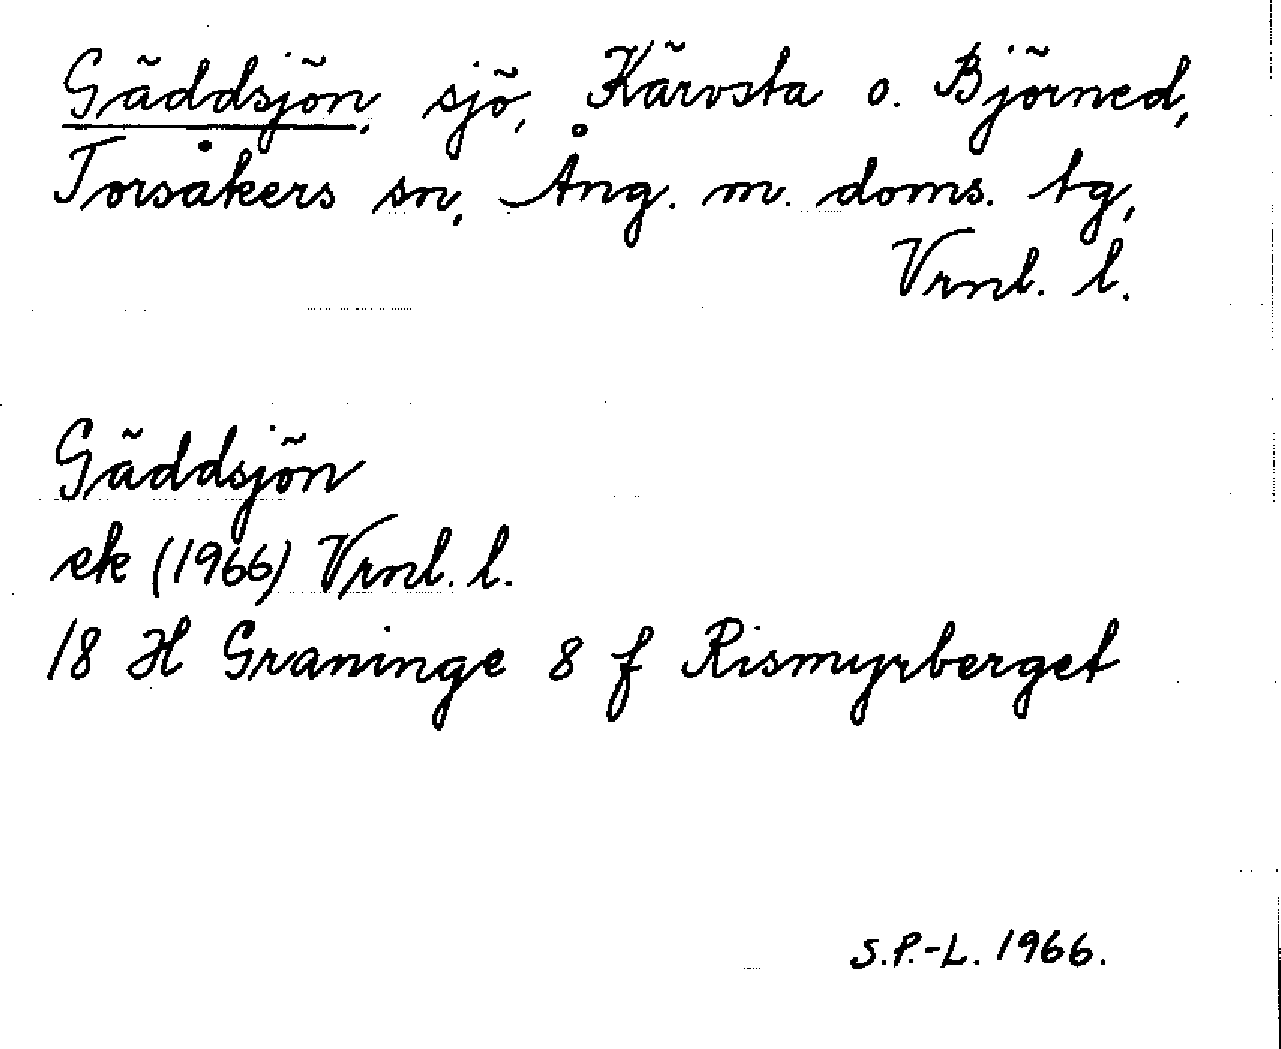 Gäddsjön, sjö, Kärvsta o. Björned,
Torsåkers sn, Ång. m. doms. tg,
Vrnl. l.
Gäddsjön
ek (1966) Vrnl. l.
18 H Graninge 8 f Rismyrberget
S.P.-L. 1966.